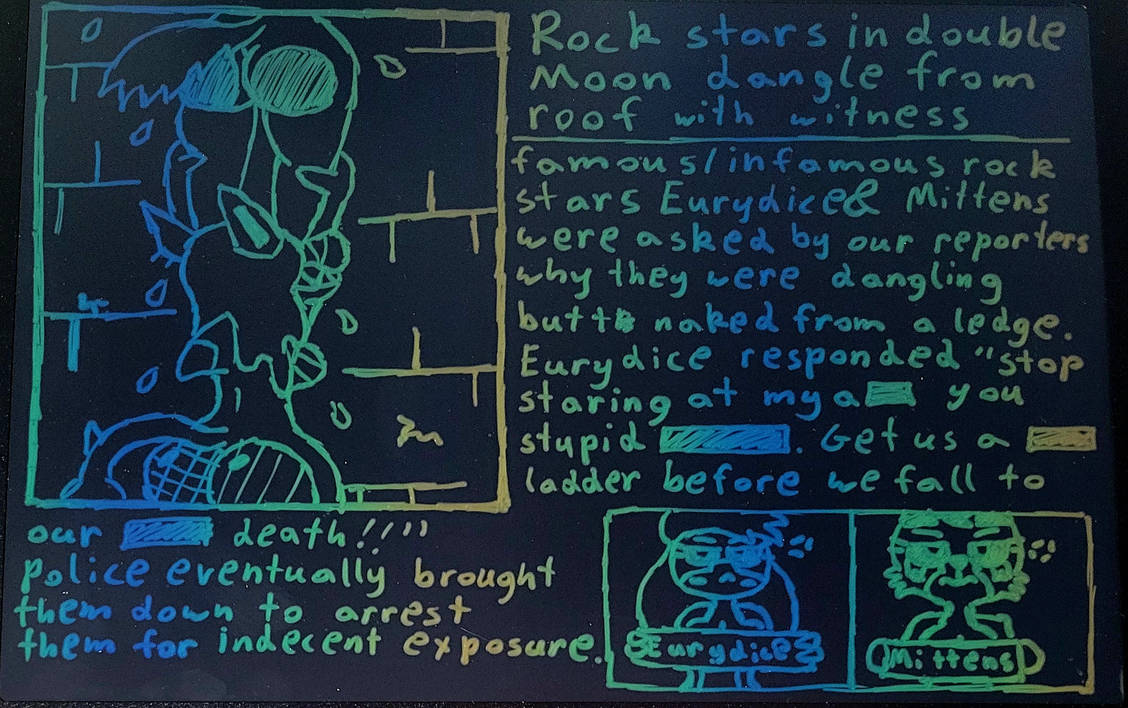 Rock stars in double
Moon dangle from
roof with witness
famous/infamous rock
stars Eurydice& Mittens
were asked by our reporters
why they were dangling
butt naked from a ledge.
Eurydice responded "stop
staring at my a you
stupid . Get us a
ladder before we fall to
our death!!"
Police eventually brought
them down to arrest
them for indecent exposure.
Eurydice
Mittens